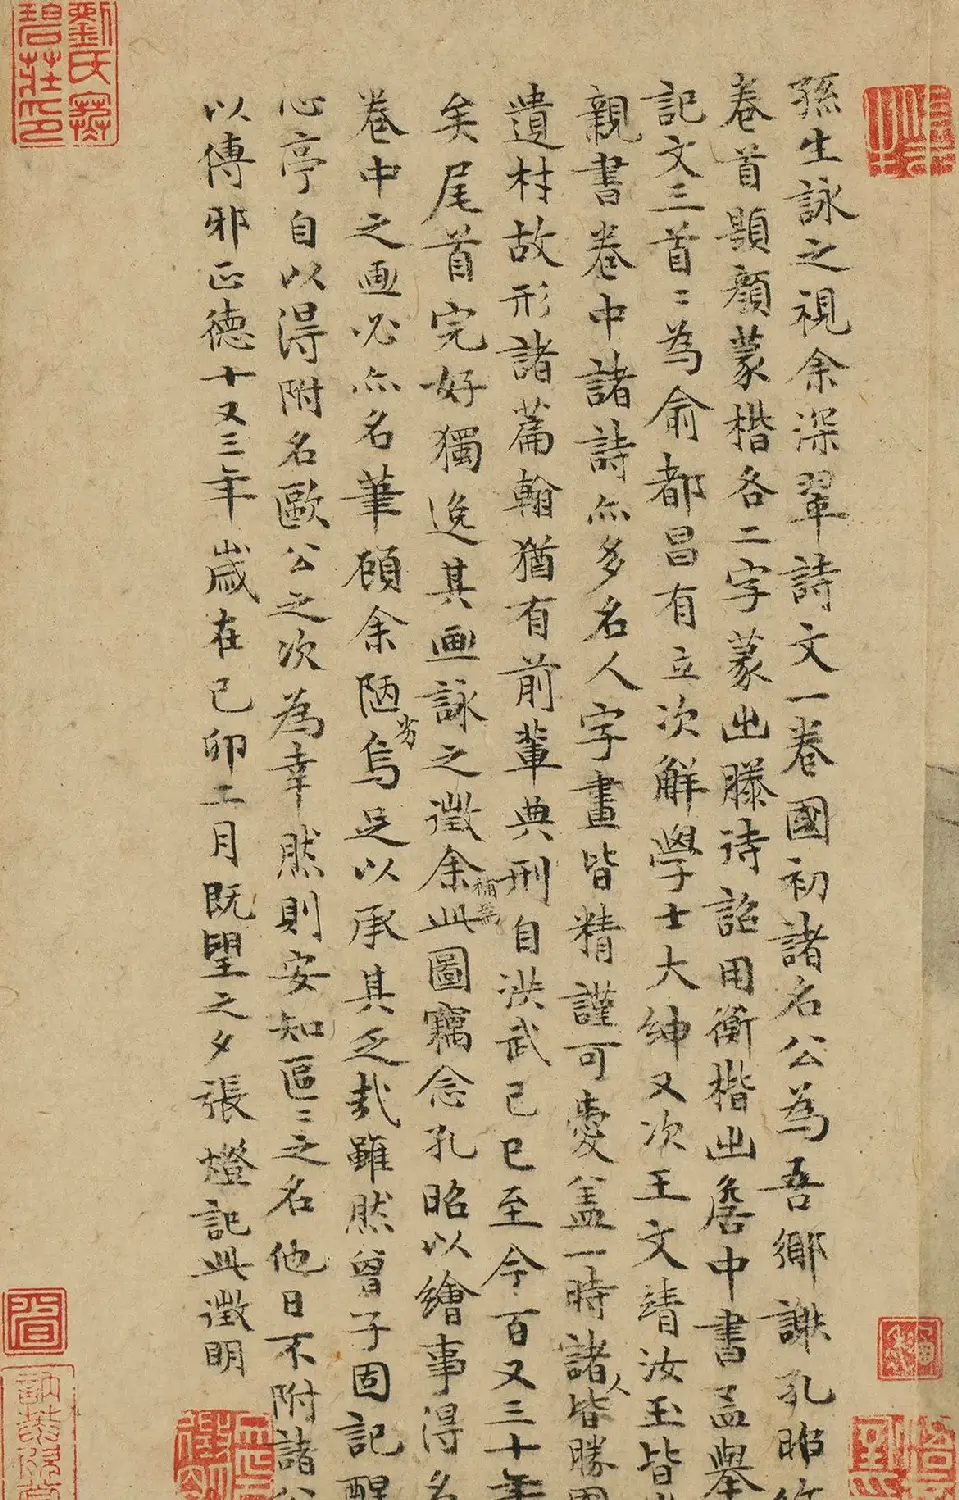 孫生詠之視余深翠詩文一卷國初諸名公為吾鄉謝孔昭作
卷首題顏蒙楷各二字蒙出滕待詔用衡楷出詹中書孟舉
記文三首〻為俞都昌有立次解學士大紳又次王文靖汝玉皆
親書卷中諸詩亦多名人字畫皆精謹可愛盖一時諸人皆勝
遺材故形諸篇翰猶有前輩典刑自洪武己巳至今百又三十年
矣尾首完好獨逸其画詠之徵余補為此圖竊念孔昭以繪事得名
卷中之画必亦名筆顧余陋劣烏足以承其乏哉雖然曾子固記醒
心亭自以得附名歐公之次為幸然則安知區〻之名他日不附諸公
以傳邪正德十又三年歲在己卯二月既望之夕張燈記此徵明